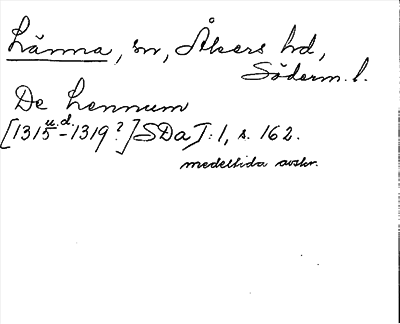 Länna, sn, Åkers hd,
Söderm. l.
De Lennum
[1315 u.d. -1319?] SDa I:1, s. 162.
medeltida avskr.